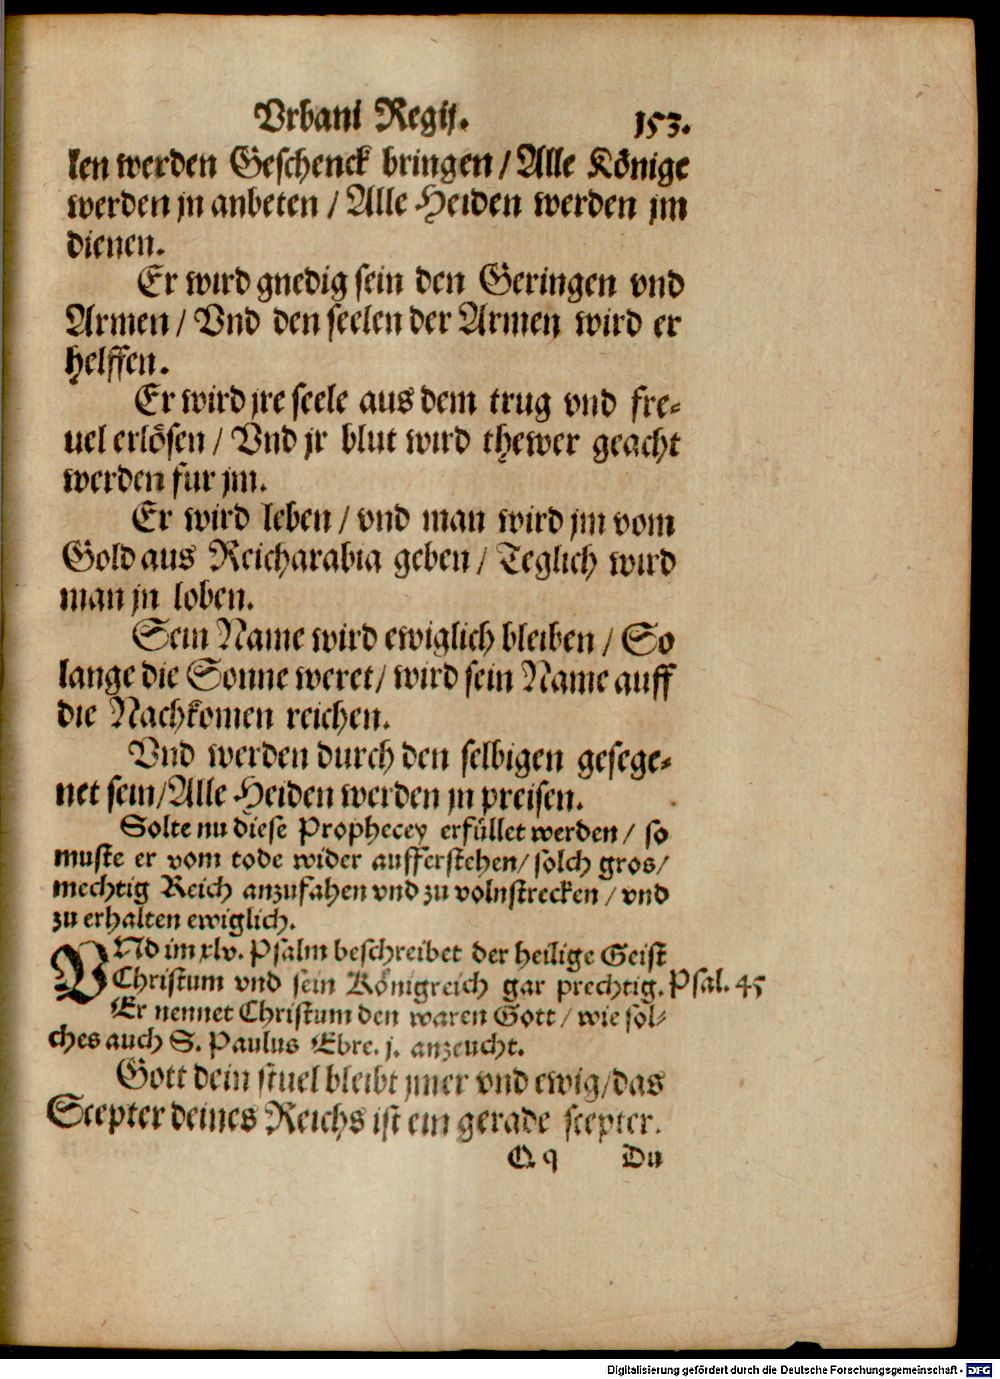 Vrbani Regij. 153.
len werden Geschenck bringen / Alle Könige
werden jn anbeten / Alle Heiden werden jm
dienen.
Er wird gnedig sein den Geringen vnd
Armen / Vnd den seelen der Armen wird er
helffen.
Er wird jre seele aus dem trug vnd fre-
uel erlösen / Vnd jr blut wird thewer geacht
werden fur jm.
Er wird leben / vnd man wird jm vom
Gold aus Reicharabia geben / Teglich wird
man jn loben.
Sein Name wird ewiglich bleiben / So
lange die Sonne weret / wird sein Name auff
die Nachkomen reichen.
Vnd werden durch den selbigen gesege-
net sein / Alle Heiden werden jn preisen.
Solte nu diese Prophecey erfüllet werden / so
muste er vom tode wider aufferstehen / solch gros /
mechtig Reich anzufahen vnd zu volnstrecken / vnd
zu erhalten ewiglich.
VNd im xlv. Psalm beschreibet der heilige Geist
Christum vnd sein Königreich gar prechtig. Psal. 45
Er nennet Christum den waren Gott / wie sol-
ches auch S. Paulus Ebre. j. anzeucht.
Gott dein stuel bleibt jmer vnd ewig / das
Scepter deines Reichs ist ein gerade scepter.
Q q Du
Digitalisierung gefördert durch die Deutsche Forschungsgemeinschaft - DFG